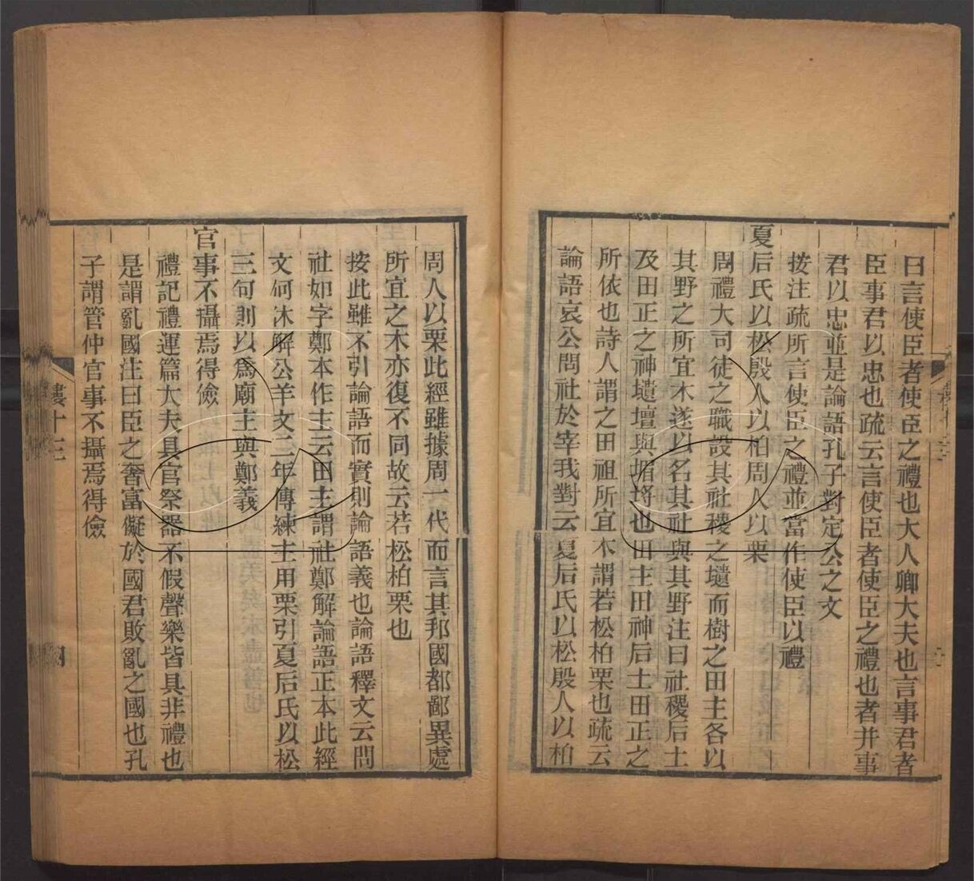 曰言使臣者使臣之禮也大人卿大夫也言事君者
臣事君以忠也疏云言使臣者使臣之禮也者并事
君以忠並是論語孔子對定公之文
按注疏所言使臣之禮並當作使臣以禮
夏后氏以松殷人以柏周人以栗
周禮大司徒之職設其社稷之壝而樹之田主各以
其野之所宜木遂以名其社與其野注曰社稷后土
及田正之神壝壇與堳埒也田主田神后土田正之
所依也詩人謂之田祖所宜木謂若松柏栗也疏云
論語哀公問社於宰我對云夏后氏以松殷人以柏
周人以栗此經雖據周一代而言其邦國都鄙異處
所宜之木亦復不同故云若松柏栗也
按此雖不引論語而實則論語義也論語釋文云問
社如字鄭本作主云田主謂社鄭解論語正本此經
文何休解公羊文二年傳練主用栗引夏后氏以松
三句則以爲廟主與鄭義
官事不攝焉得儉
禮記禮運篇大夫具官祭器不假聲樂皆具非禮也
是謂亂國注曰臣之奢富儗於國君敗亂之國也孔
子謂管仲官事不攝焉得儉